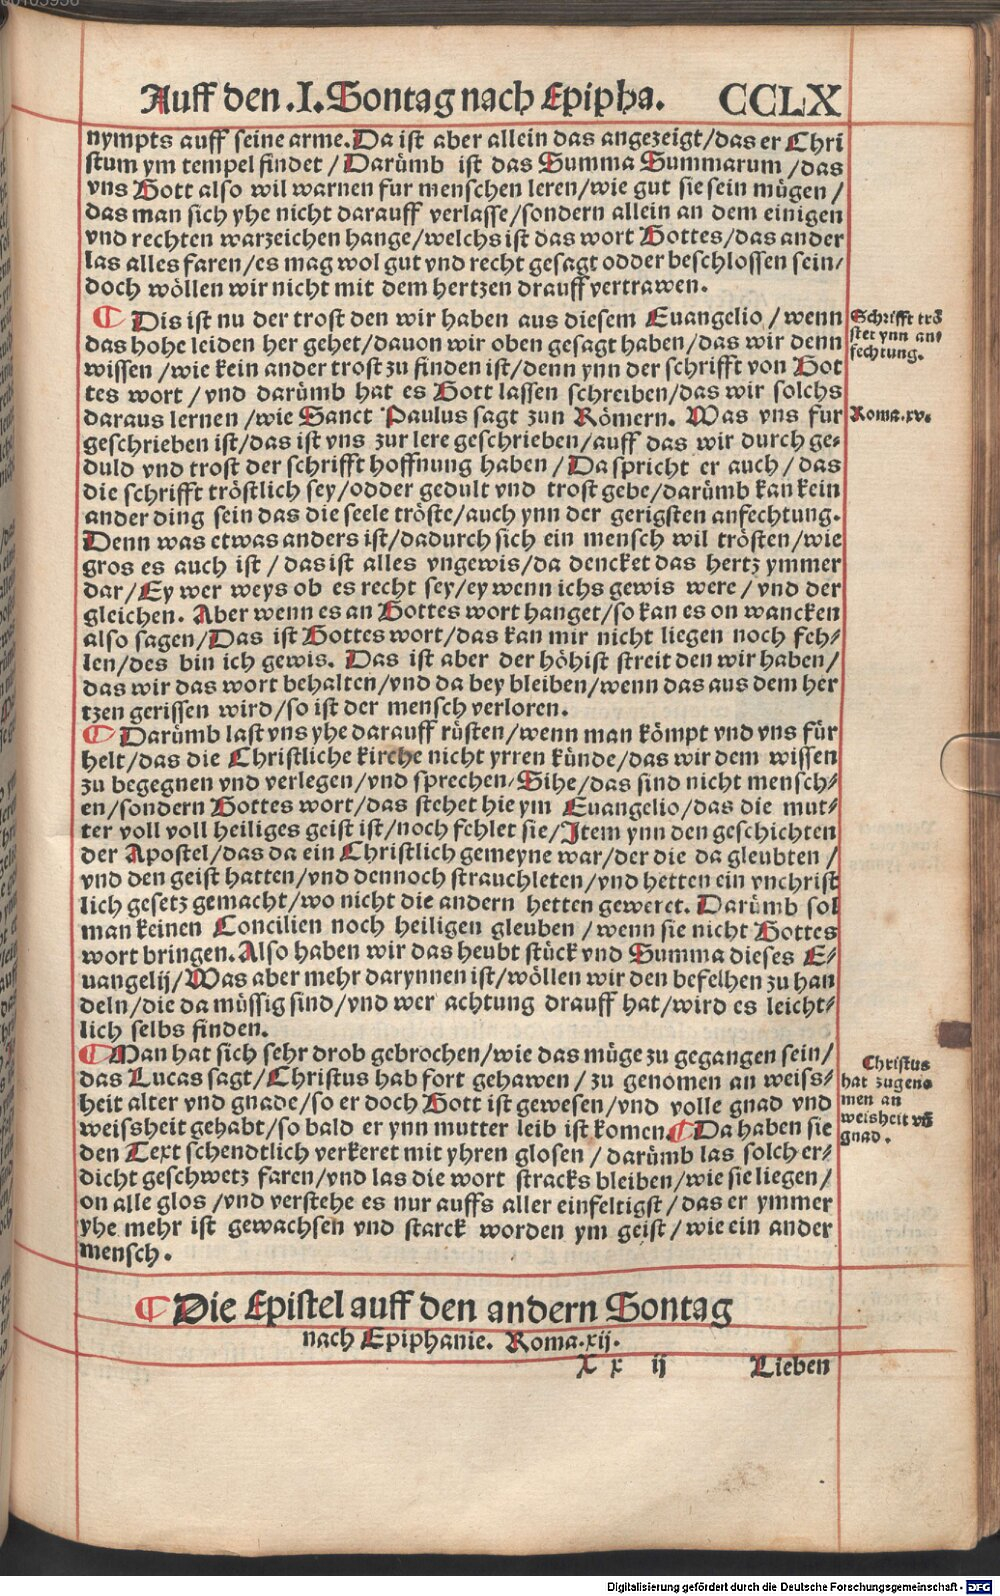 Auff den .I. Sontag nach Epipha. CCLX
nympts auff seine arme. Da ist aber allein das angezeigt/das er Chri
stum ym tempel findet / Darumb ist das Summa Summarum /das
vns Gott also wil warnen fur menschen leren/wie gut sie sein mügen /
das man sich yhe nicht darauff verlasse/sondern allein an dem einigen
vnd rechten warzeichen hange/welchs ist das wort Gottes/das ander
las alles faren/es mag wol gut vnd recht gesagt odder beschlossen sein/
doch wöllen wir nicht mit dem hertzen drauff vertrawen.
¶ Dis ist nu der trost den wir haben aus diesem Euangelio / wenn
das hohe leiden her gehet/dauon wir oben gesagt haben/das wir denn
wissen / wie kein ander trost zu finden ist/denn ynn der schrifft von Got
tes wort / vnd darümb hat es Gott lassen schreiben/das wir solchs
daraus lernen /wie Sanct Paulus sagt zun Römern. Was vns fur
geschrieben ist/das ist vns zur lere geschrieben/auff das wir durch ge-
duld vnd trost der schrifft hoffnung haben / Da spricht er auch / das
die schrifft tröstlich sey/odder gedult vnd trost gebe/darümb kan kein
ander ding sein das die seele tröste/auch ynn der gerigsten anfechtung.
Denn was etwas anders ist/dadurch sich ein mensch wil trösten/wie
gros es auch ist / das ist alles vngewis/da dencket das hertz ymmer
dar/Ey wer weys ob es recht sey/ey wenn ichs gewis were / vnd der
gleichen. Aber wenn es an Gottes wort hanget/so kan es on wancken
also sagen/Das ist Gottes wort/das kan mir nicht liegen noch feh-
len/des bin ich gewis. Das ist aber der höhist streit den wir haben/
das wir das wort behalten/vnd da bey bleiben/wenn das aus dem her
tzen gerissen wird/so ist der mensch verloren.
¶ Darümb last vns yhe darauff rüsten/wenn man kömpt vnd vns für
helt/das die Christliche kirche nicht yrren künde/das wir dem wissen
zu begegnen vnd verlegen/vnd sprechen/Sihe/das sind nicht mensch-
en/sondern Gottes wort/das stehet hie ym Euangelio/das die mut-
ter voll voll heiliges geist ist/noch fehlet sie/Item ynn den geschichten
der Apostel/das da ein Christlich gemeyne war/der die da gleubten /
vnd den geist hatten/vnd dennoch strauchleten/vnd hetten ein vnchrist
lich gesetz gemacht/wo nicht die andern hetten geweret. Darümb sol
man keinen Concilien noch heiligen gleuben /wenn sie nicht Gottes
wort bringen. Also haben wir das heubt stück vnd Summa dieses E-
uangelij/Was aber mehr darynnen ist/wöllen wir den befelhen zu han
deln/die da müssig sind/vnd wer achtung drauff hat/wird es leicht-
lich selbs finden.
¶ Man hat sich sehr drob gebrochen/wie das müge zu gegangen sein/
das Lucas sagt/Christus hab fort gehawen/ zu genomen an weiss-
heit alter vnd gnade/so er doch Gott ist gewesen/vnd volle gnad vnd
weissheit gehabt/so bald er ynn mutter leib ist komen. ¶ Da haben sie
den Text schendtlich verkeret mit yhren glosen / darümb las solch er-
dicht geschwetz faren/vnd las die wort stracks bleiben/wie sie liegen/
on alle glos /vnd verstehe es nur auffs aller einfeltigst/das er ymmer
yhe mehr ist gewachsen vnd starck worden ym geist/wie ein ander
mensch.
Schrifft trö
stet ynn an-
fechtung.
Roma.xv.
Christus
hat zugeno
men an
weisheit vñ
gnad.
¶ Die Epistel auff den andern Sontag
nach Epiphanie. Roma.xij.
X x ij Lieben
Digitalisierung gefördert durch die Deutsche Forschungsgemeinschaft - DFG